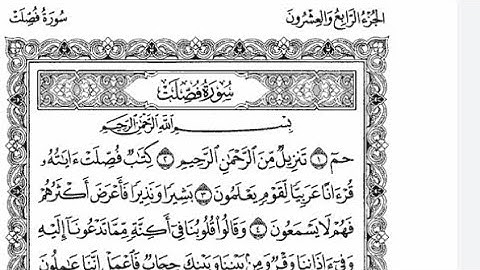 الجزء الرابع والعشرون
سورة فصلت
سُورَةُ فُصِّلَتْ
بِسْمِ ٱللَّهِ ٱلرَّحْمَٰنِ ٱلرَّحِيمِ
حمٓ ١ تَنزِيلٌ مِّنَ ٱلرَّحْمَٰنِ ٱلرَّحِيمِ ٢ كِتَٰبٌ فُصِّلَتْ ءَايَٰتُهُۥ
قُرْءَانًا عَرَبِيًّا لِّقَوْمٍ يَعْلَمُونَ ٣ بَشِيرًا وَنَذِيرًا فَأَعْرَضَ أَكْثَرُهُمْ
فَهُمْ لَا يَسْمَعُونَ ٤ وَقَالُوا۟ قُلُوبُنَا فِىٓ أَكِنَّةٍ مِّمَّا تَدْعُونَآ إِلَيْهِ
وَفِىٓ ءَاذَانِنَا وَقْرٌ وَمِنۢ بَيْنِنَا وَبَيْنِكَ حِجَابٌ فَٱعْمَلْ إِنَّنَا عَٰمِلُونَ